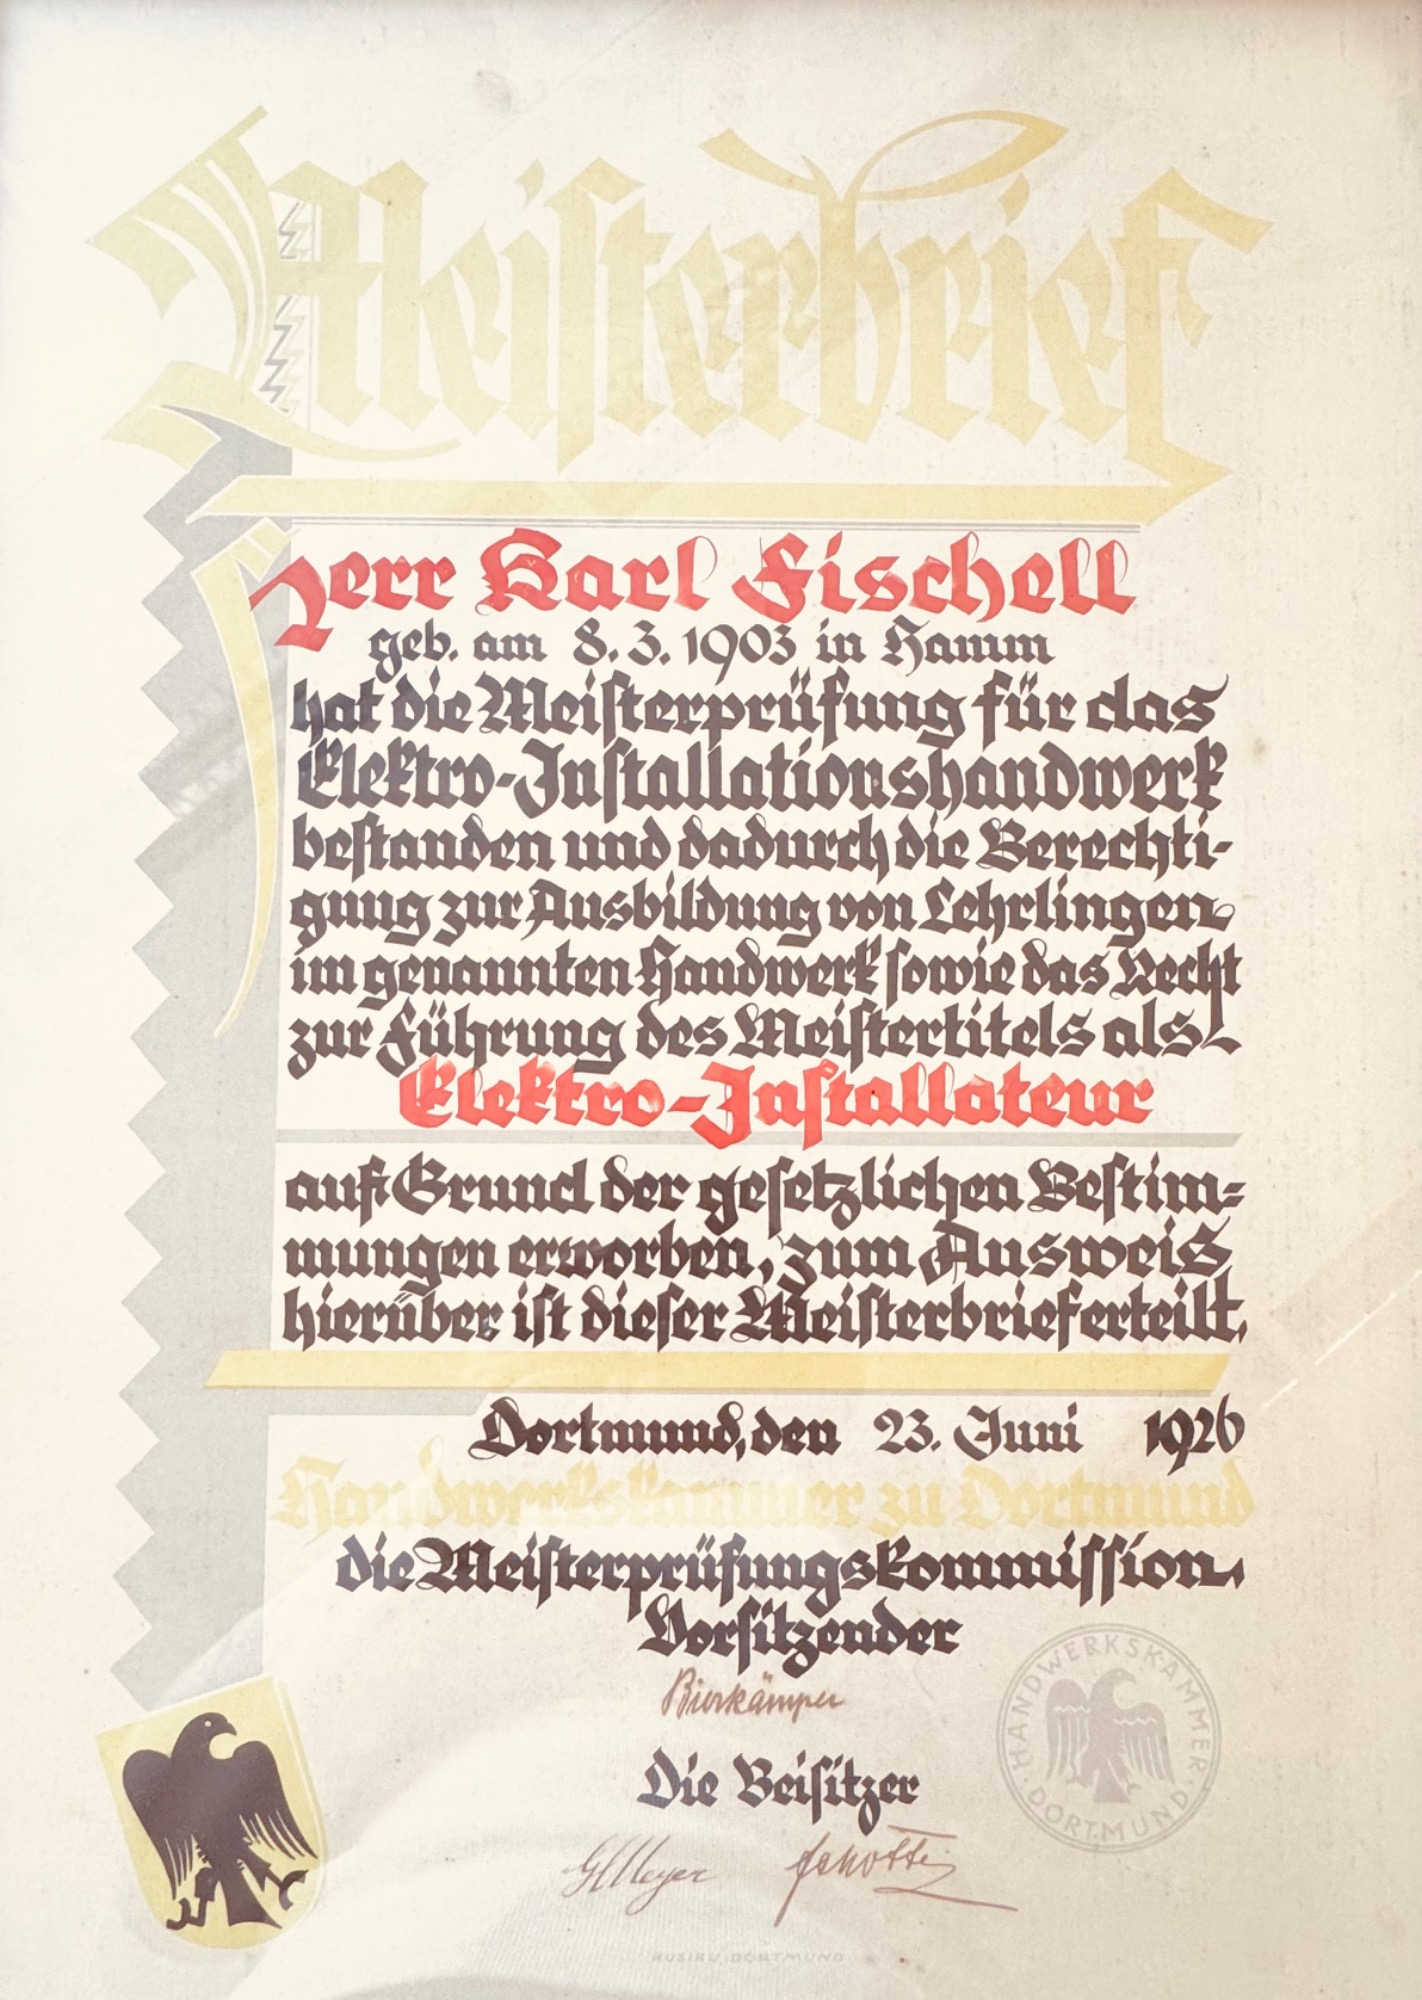 Meisterbrief
Herr Karl Fischell
geb. am 8.3.1903 in Hamm
hat die Meisterprüfung für das
Elektro-Installationshandwerk
bestanden und dadurch die Berechti-
gung zur Ausbildung von Lehrlingen
im genannten Handwerk sowie das Recht
zur Führung des Meistertitels als
Elektro-Installateur
auf Grund der gesetzlichen Bestim-
mungen erworben, zum Ausweis
hierüber ist dieser Meisterbrief erteilt.
Dortmund, den 23. Juni 1926
Handwerkskammer zu Dortmund
die Meisterprüfungskommission.
Vorsitzender
Bierkämper
HANDWERKSKAMMER · DORTMUND ·
Die Beisitzer
Meyer
DORTMUND